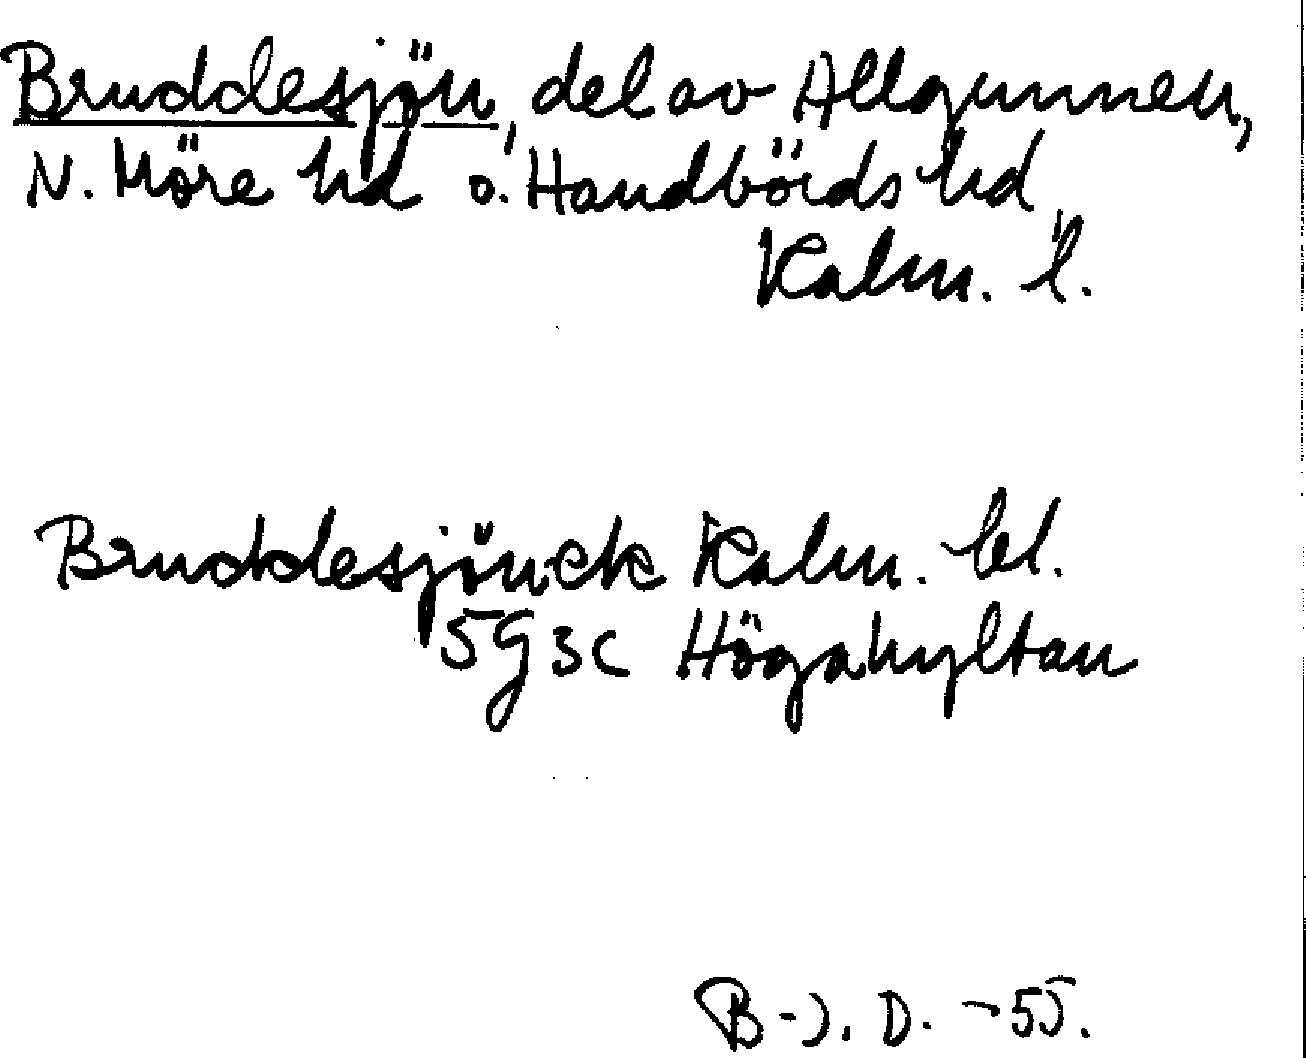 Bruddesjön, del av Allgunnen,
N. Möre hd o. Handbörds hd
Kalm. l.
Bruddesjön ek Kalm. bl.
5g3c Högahyltan
B-J. D. -55.